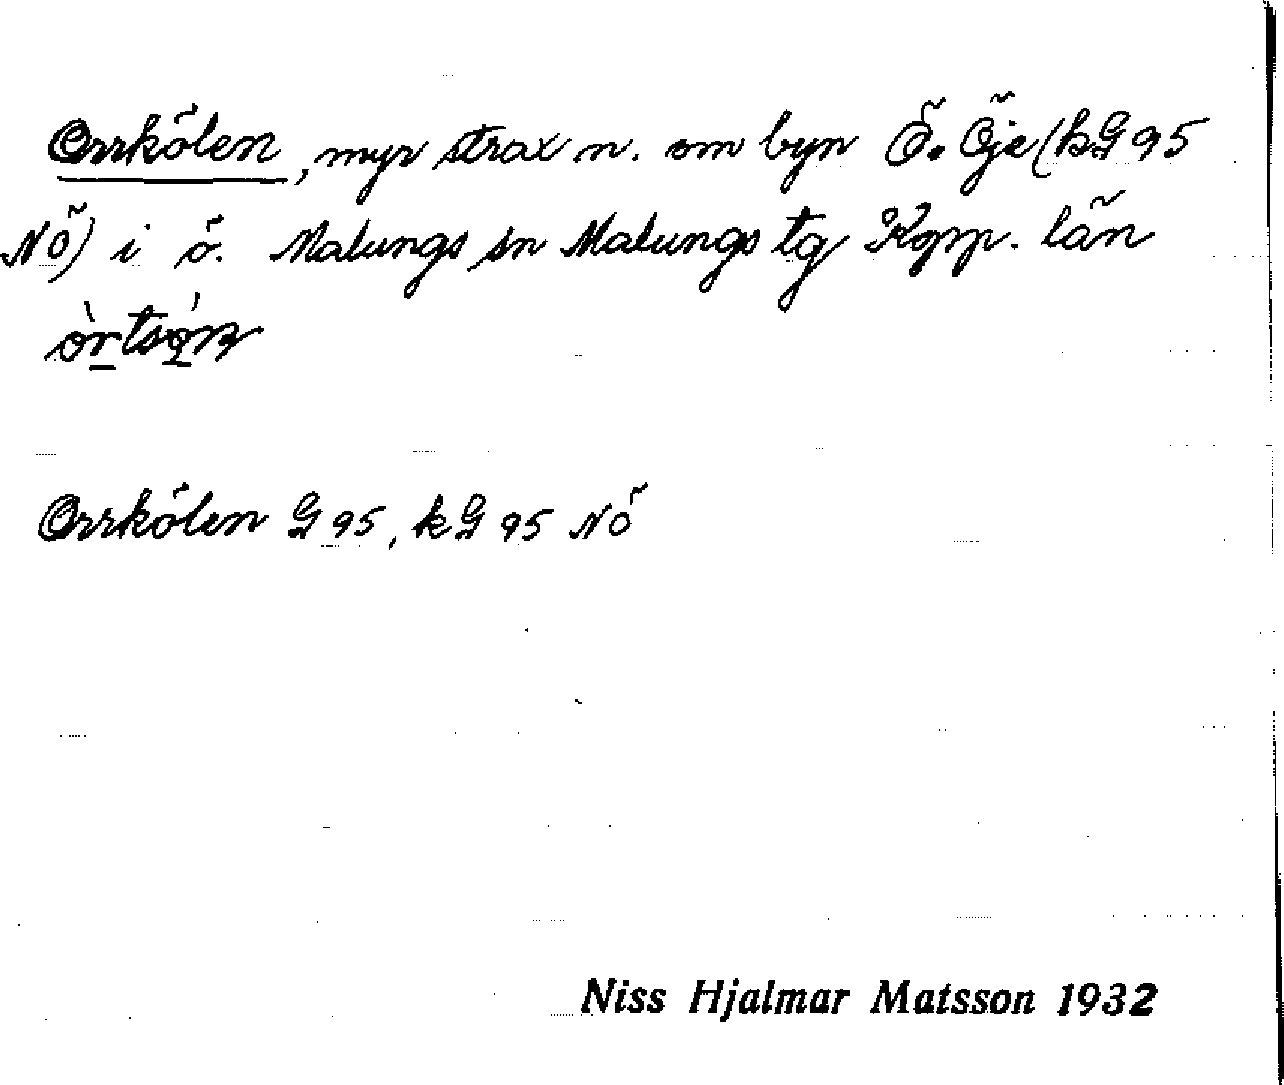 Orrkölen, myr strax n. om byn Ö. Öje (kG 95
NÖ) i ö. Malungs sn Malungs tg Kopp. län
Orrkölen G 95, kG 95 NÖ
Niss Hjalmar Matsson 1932